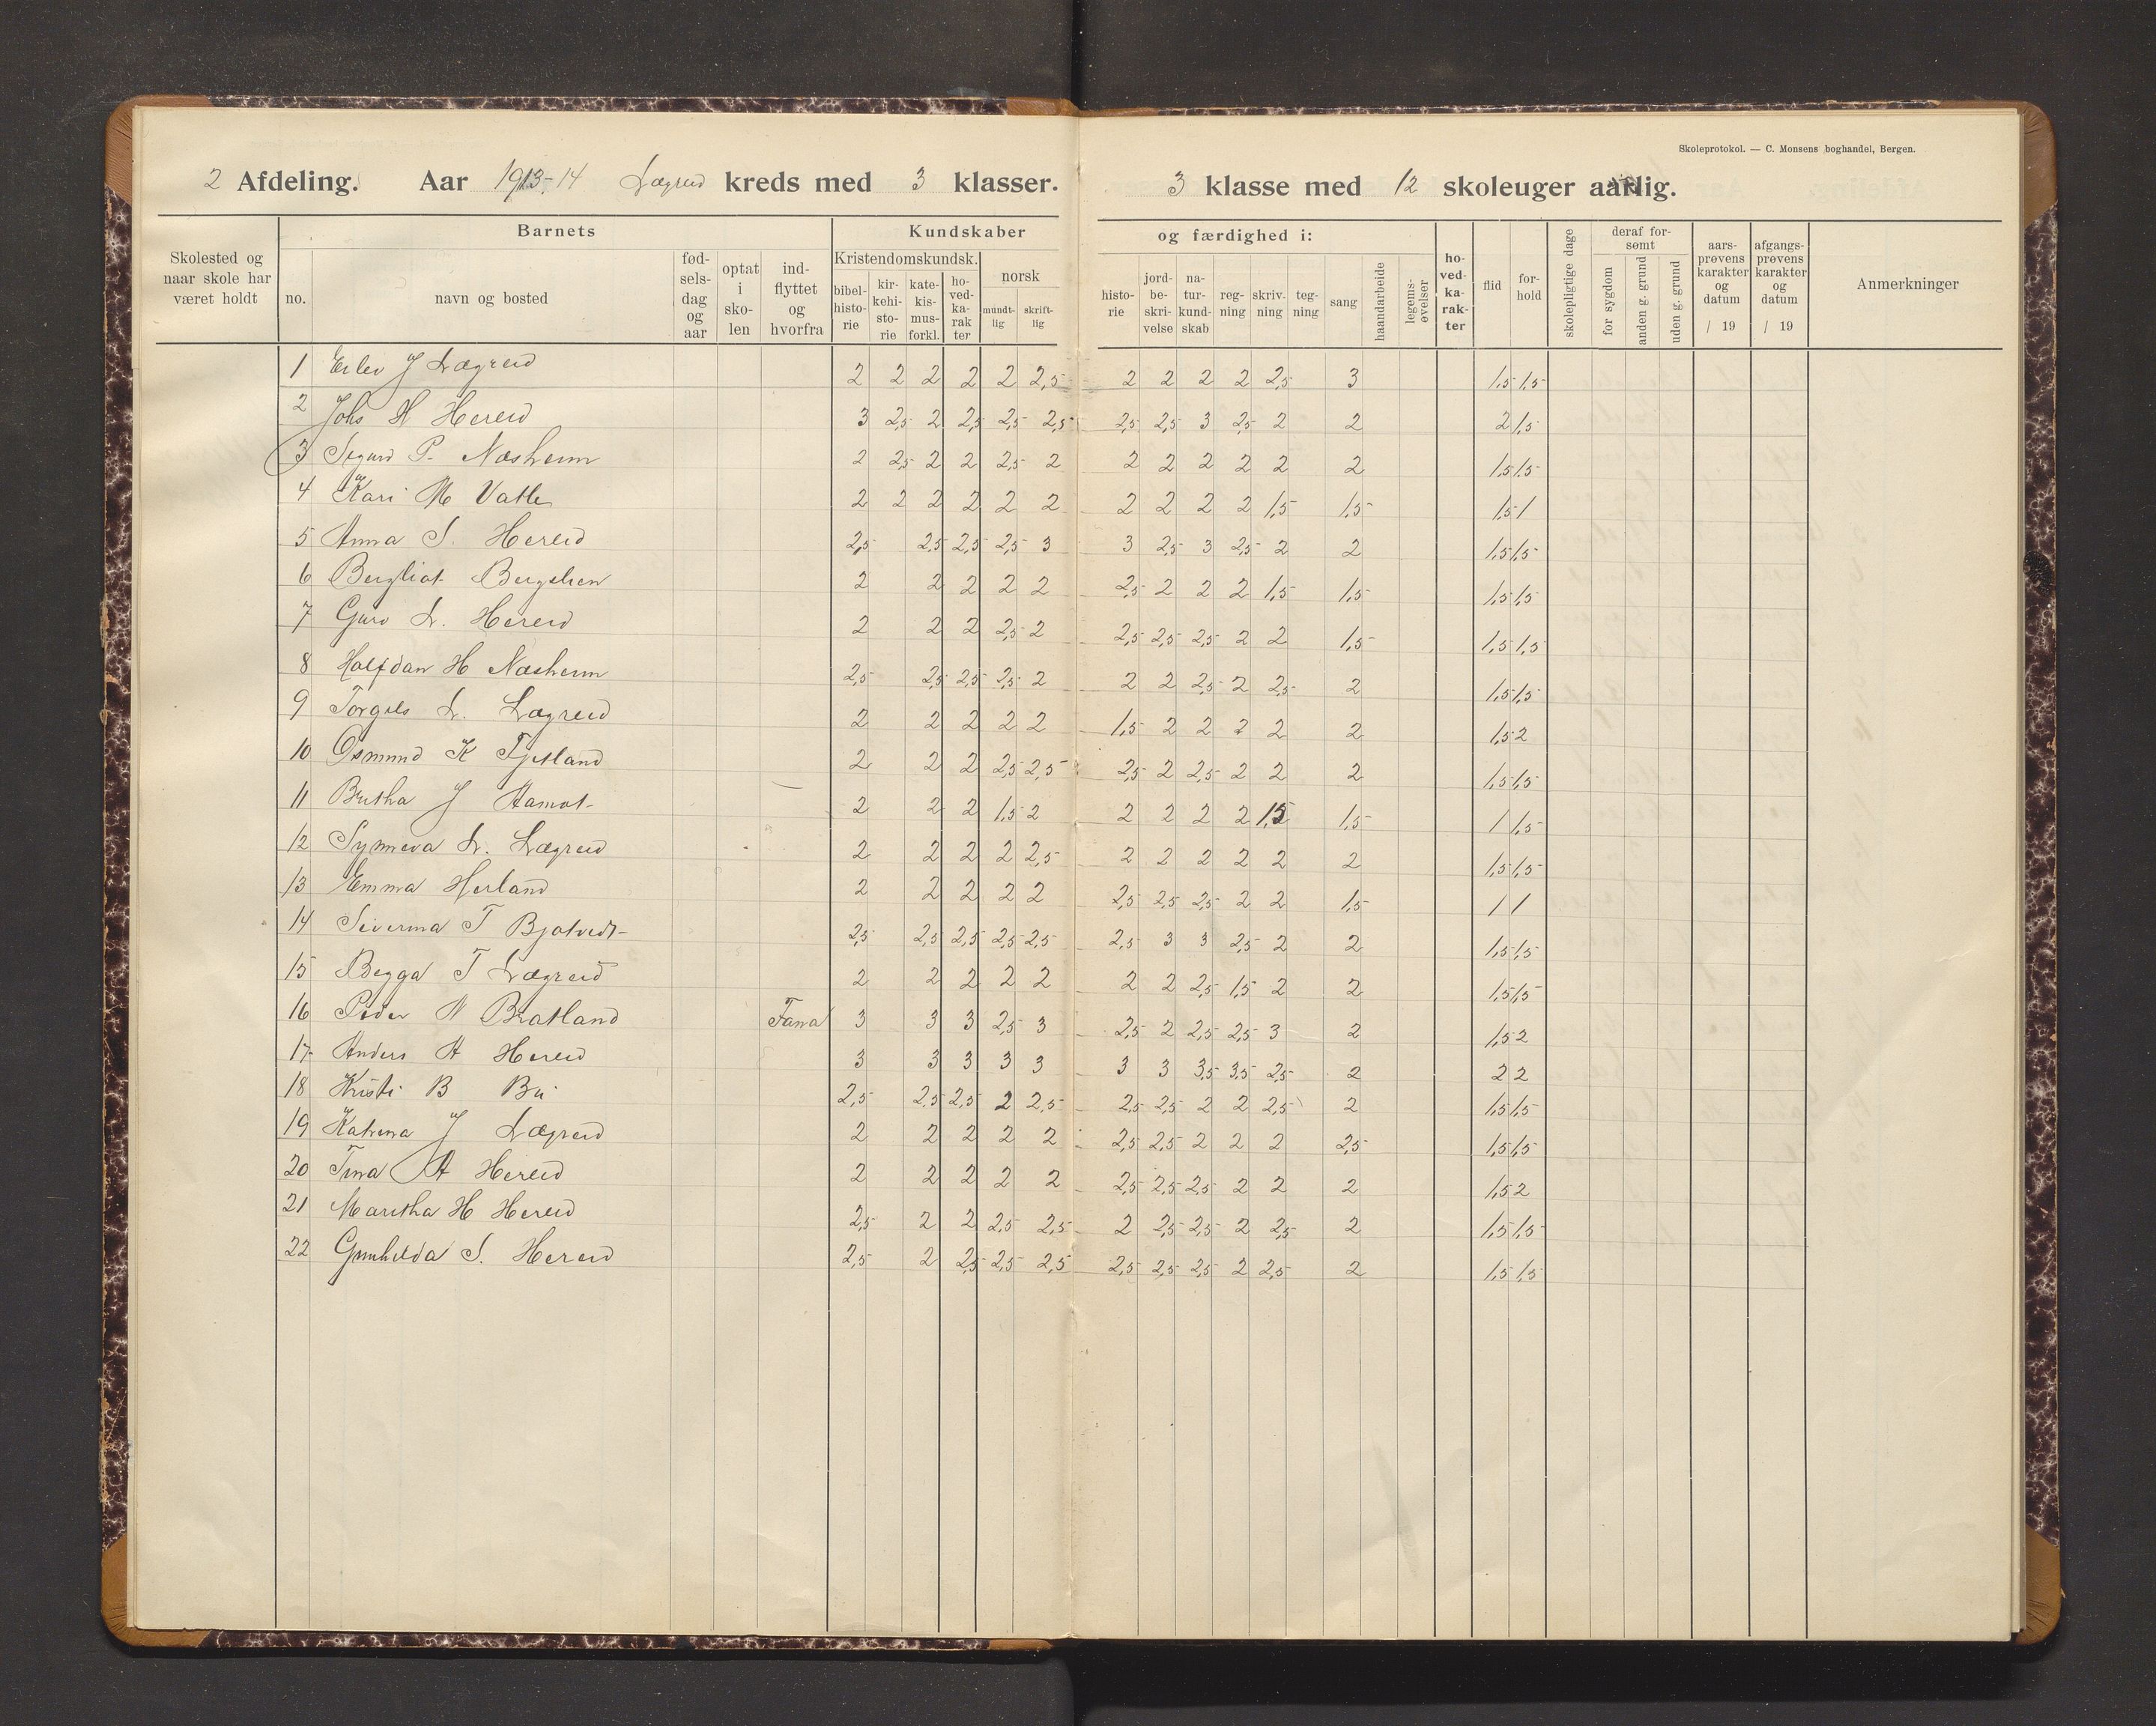 Skoleprotokol. — C. Monsens boghandel, Bergen.
2 Afdeling. Aar 1913-14 Lægreid kreds med 3 klasser. 3 klasse med 12 skoleuger aarlig.
Skolested og naar skole har været holdt
Barnets
no. navn og bosted fødselsdag og aar optat i skolen indflyttet og hvorfra
Kundskaber og færdighed i:
Kristendomskundsk. norsk
bibelhistorie kirkehistorie katekismusforkl. hovedkarakter mundtlig skriftlig
historie jordbeskrivelse naturkundskab regning skrivning tegning sang haandarbeide legemsøvelser hovedkarakter flid forhold
skolepligtige dage deraf forsømt for sygdom anden g. grund uden g. grund
aarsprøvens karakter og datum / 19 afgangsprøvens karakter og datum / 19 Anmerkninger
1 Erlev J Lægreid 2 2 2 2 2 2,5 2 2 2 2 2,5 3 1,5 1,5
2 Johs H Hereid 3 2,5 2 2,5 2,5 2,5 2,5 2,5 3 2,5 2 2 2 1,5
3 Sigurd P. Næsheim 2 2,5 2 2 2,5 2 2 2 2 2 2 2 1,5 1,5
4 Kari M Vatle 2 2 2 2 2 2 2 2 2 2 1,5 1,5 1,5 1
5 Anna S. Hereid 2,5 2,5 2,5 2,5 3 3 2,5 3 2,5 2 2 1,5 1,5
6 Bergliot Bergesen 2 2 2 2 2 2,5 2 2 2 1,5 1,5 1,5 1,5
7 Guro L. Hereid 2 2 2 2,5 2 2,5 2,5 2,5 2 2 1,5 1,5 1,5
8 Halfdan H Næsheim 2,5 2,5 2,5 2,5 2 2 2 2,5 2 2,5 2 1,5 1,5
9 Torgils L. Lægreid 2 2 2 2 2 1,5 2 2 2 2 2 1,5 2
10 Osmund K Tjetland 2 2 2 2,5 2,5 2,5 2 2,5 2 2 2 1,5 1,5
11 Britha J Aamot 2 2 2 1,5 2 2 2 2 2 1,5 1,5 1 1,5
12 Synneva L. Lægreid 2 2 2 2 2,5 2 2 2 2 2 2 1,5 1,5
13 Emma Herland 2 2 2 2 2 2,5 2,5 2,5 2 2 1,5 1 1
14 Siverina T Bjotvedt 2,5 2,5 2,5 2,5 2,5 2,5 3 3 2,5 2 2 1,5 1,5
15 Begga T Lægreid 2 2 2 2 2 2 2 2,5 1,5 2 2 1,5 1,5
16 Peder N Bratland Fana 3 3 3 2,5 3 2,5 2 2,5 2,5 3 2 1,5 2
17 Anders A Hereid 3 3 3 3 3 3 3 3,5 3,5 2,5 2 2 2
18 Kristi B Bu 2,5 2,5 2,5 2 2,5 2,5 2,5 2 2 2,5 2 1,5 1,5
19 Katrina J Lægreid 2 2 2 2 2 2,5 2,5 2 2 2 2,5 1,5 1,5
20 Tina A Hereid 2 2 2 2 2 2,5 2,5 2,5 2 2 2 1,5 2
21 Maritha H Hereid 2,5 2 2 2,5 2,5 2 2,5 2,5 2 2,5 2 1,5 1,5
22 Gunhilda S. Hereid 2,5 2 2,5 2,5 2,5 2,5 2,5 2,5 2 2,5 2 1,5 1,5